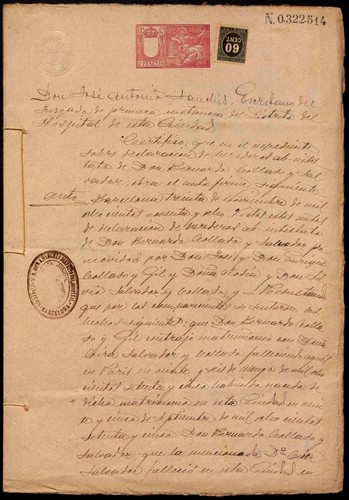 N. 0.322.514
2 PESETAS
60 CENT
Don José Antonio Sanchis, Escribano del
Juzgado de primera instancia del Distrito del
Hospital de esta Ciudad.
Certifico; que en el expediente
sobre declaracion de herederos ab intes
tato de Don Bernardo Collado y Sal
vador, obra el auto firme siguiente
Auto Barcelona treinta de Noviembre de mil
ochocientos noventa y ocho. Vistos estos autos
de declaracion de herederos ab intestato
de Don Bernardo Collado y Salvador pro
movidos por Don José y Don Enrique
Collado y Gil y Doña y Don
Salvador y Collado y Resultando
que por los comparecientes se sentaron los
hechos siguientes: que Don Bernardo Colla
do y Gil contrajo matrimonio con Doña
Salvador y Collado falleciendo aquel
en Paris en veinte y seis de Mayo de mil ocho
cientos setenta y cinco habiendo nacido de
dicho matrimonio en esta Ciudad en
y cinco de Septiembre de mil ochocientos
setenta y cinco Don Bernardo Collado y
Salvador; que la mencionada Dª
Salvador falleció en esta Ciudad en